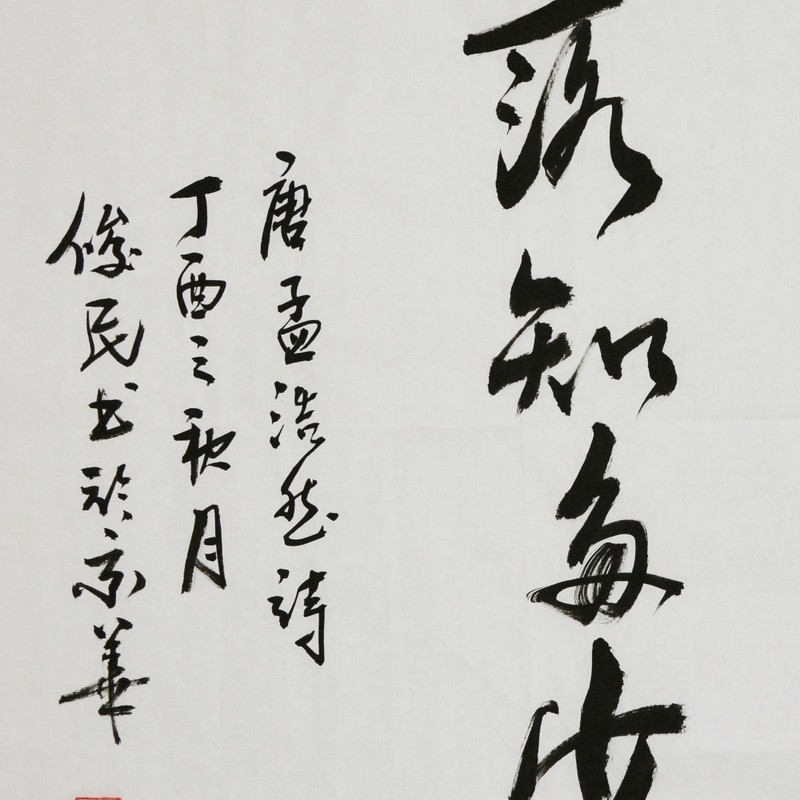 落知多少
唐孟浩然詩
丁酉之秋月
俊民书於京華